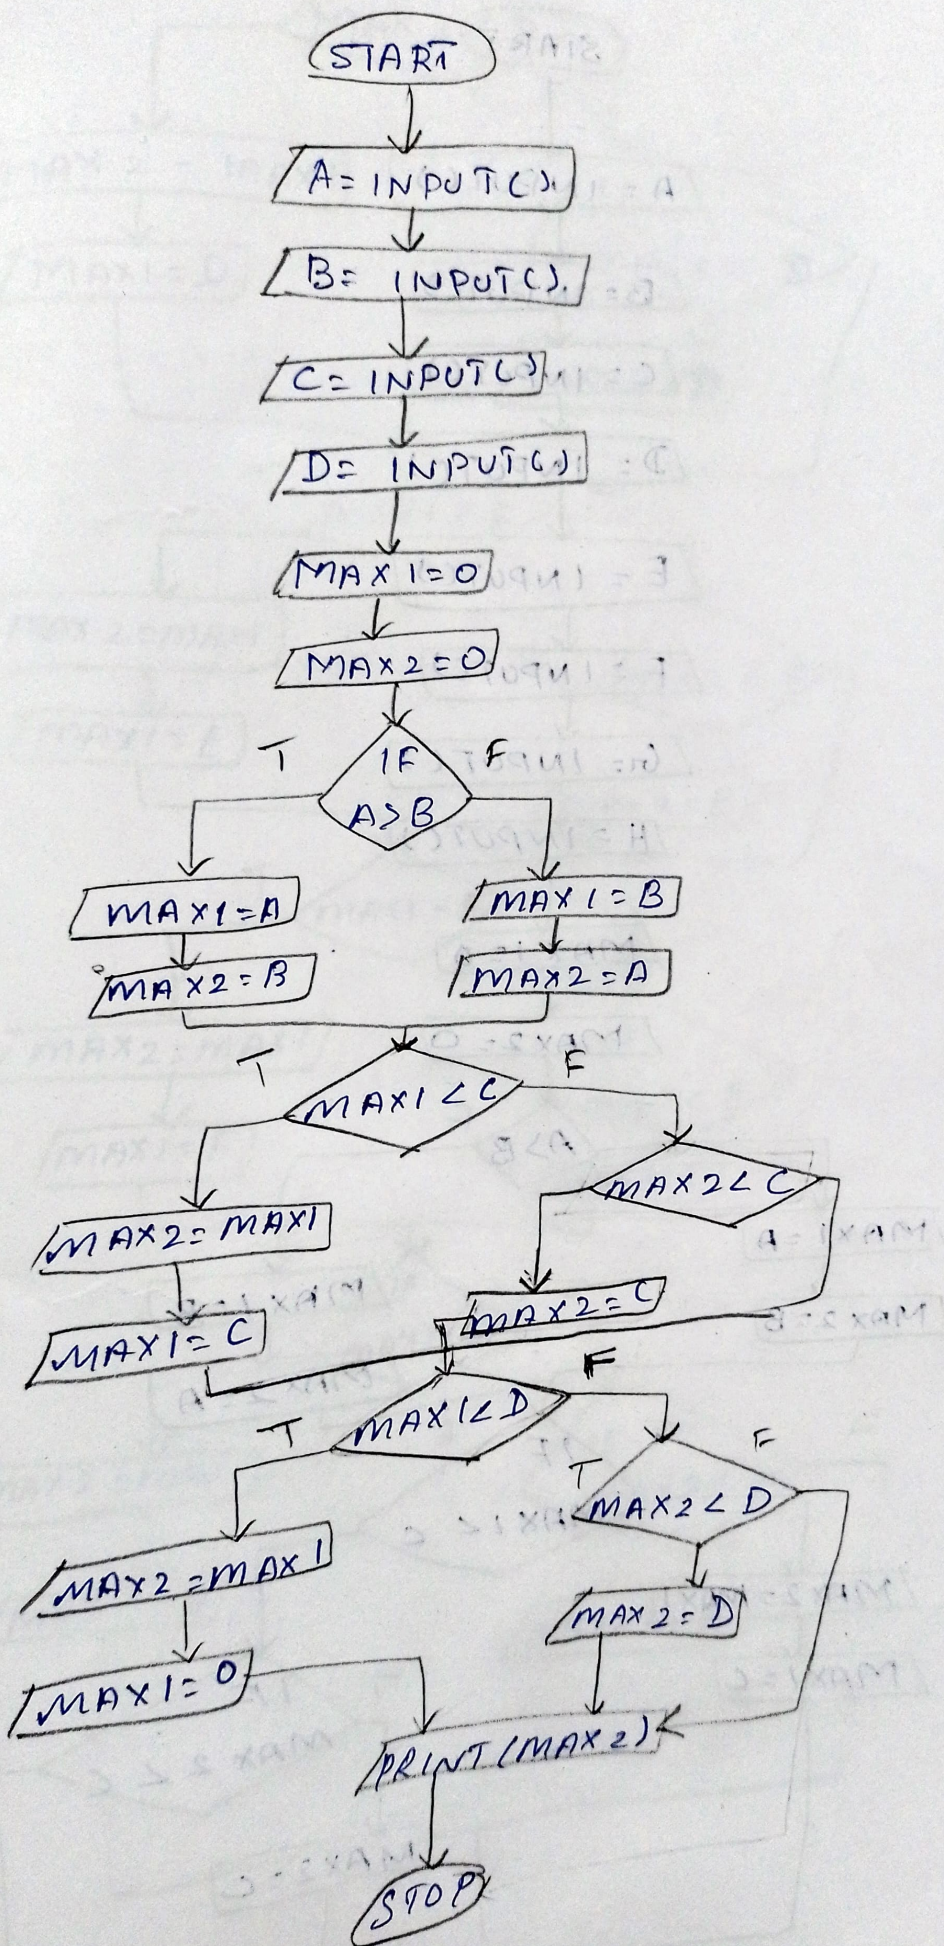 START
A= INPUT().
B= INPUT().
C= INPUT()
D= INPUT()
MAX 1=0
MAX2=0
T
IF
F
A>B
MAX1=A
MAX1=B
MAX2=B
MAX2=A
T
F
MAX1<C
MAX2<C
MAX2=MAX1
MAX2=C
MAX1=C
F
T
MAX1<D
F
T
MAX2<D
MAX2=MAX1
MAX2=D
MAX1=0
PRINT(MAX2)
STOP